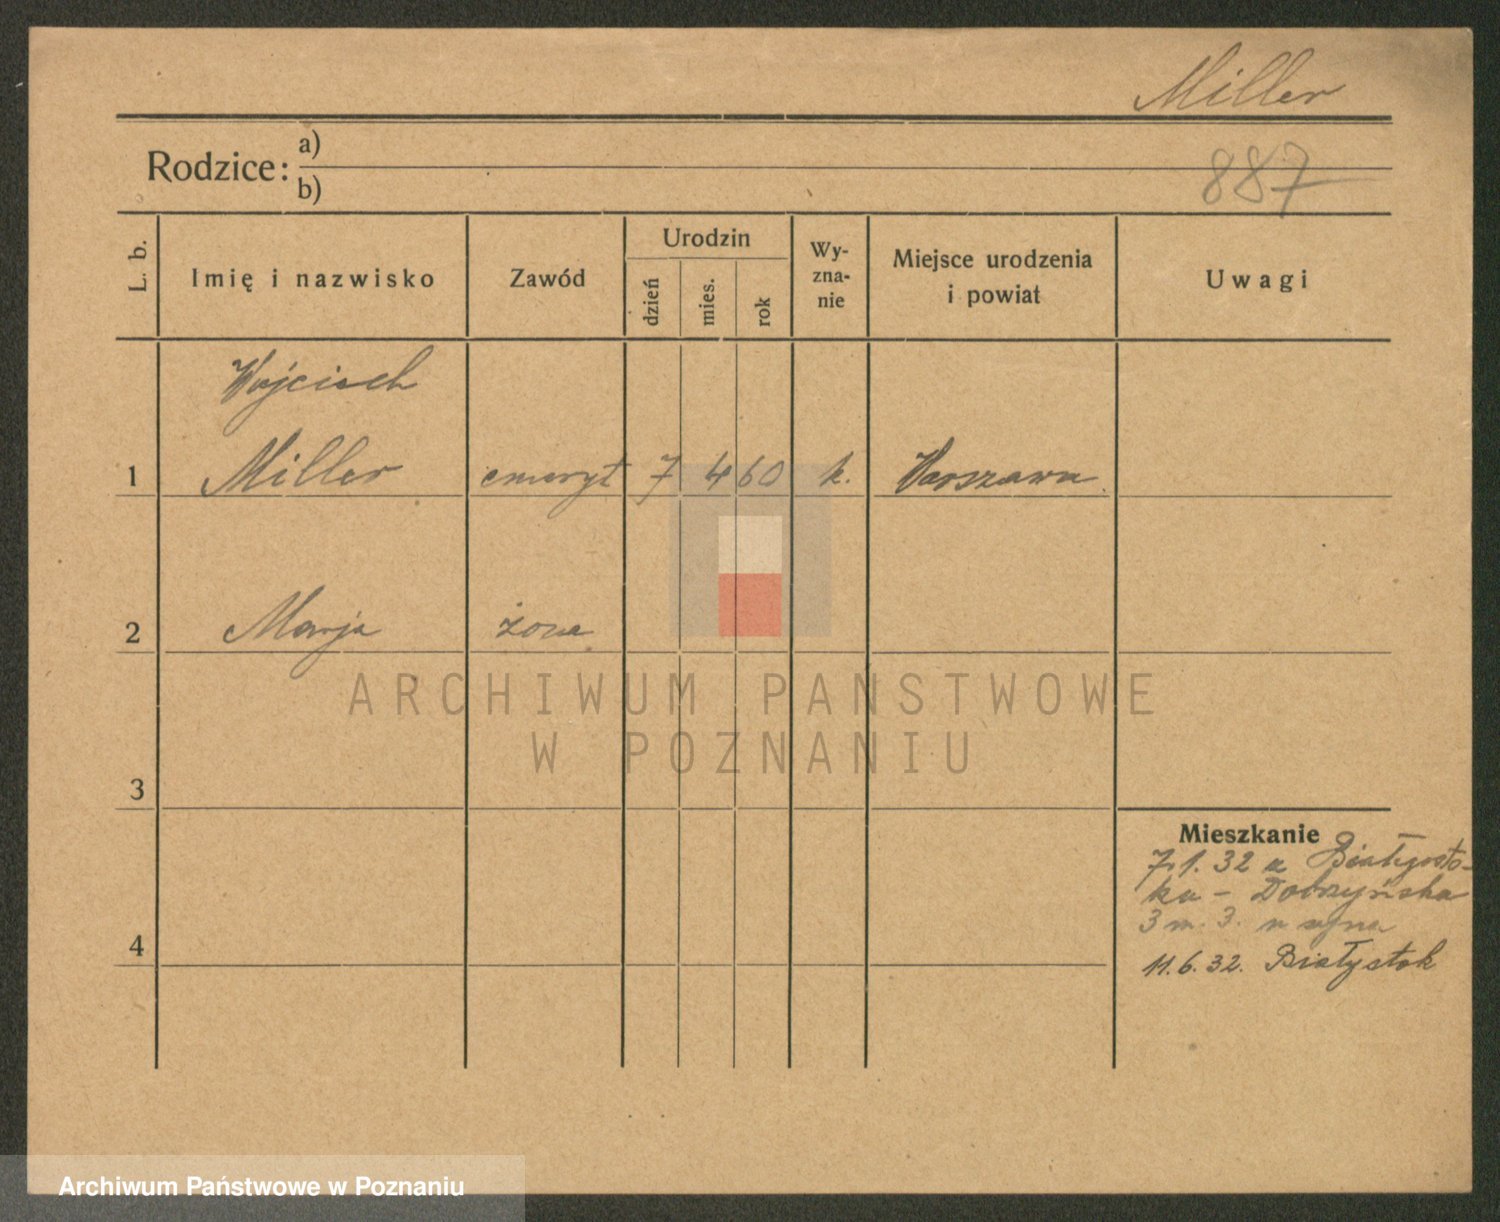 Miller
887
Rodzice:
a)
b)
L. b.
Imię i nazwisko
Zawód
Urodzin
dzień
mies.
rok
Wy-
zna-
nie
Miejsce urodzenia
i powiat
Uwagi
Wojciech
1 Miller emeryt 7 4 60 k. Warszawa
2 Marja żona
ARCHIWUM PAŃSTWOWE
W POZNANIU
3
Mieszkanie
7.1.32 z Białegosto-
ku - Dobrzyńska
3 m. 3. u syna
4
11.6.32. Białystok
Archiwum Państwowe w Poznaniu